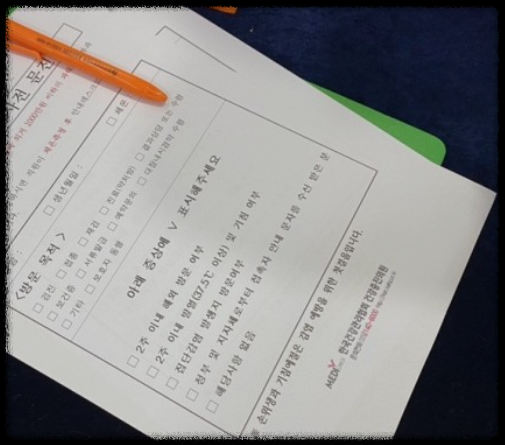 사전 문진
생년월일 :
<방문 목적 >
□ 검진 □ 접종 □ 재검 □ 진료(약처방) □ 결과상담 또는 수령
□ 보건증 □ 서류발급 □ 예약문의 □ 대장내시경약 수령
□ 기타 □ 보호자 동행
아래 증상에 V 표시해주세요
□ 2주 이내 해외 방문 여부
□ 2주 이내 발열(37.5℃ 이상) 및 기침 여부
□ 집단감염 발생지 방문여부
□ 정부 및 지자체로부터 접촉자 안내 문자를 수신 받은 분
□ 해당사항 없음
손위생과 기침예절은 감염 예방을 위한 첫걸음입니다.
MEDI 한국건강관리협회 건강증진의원